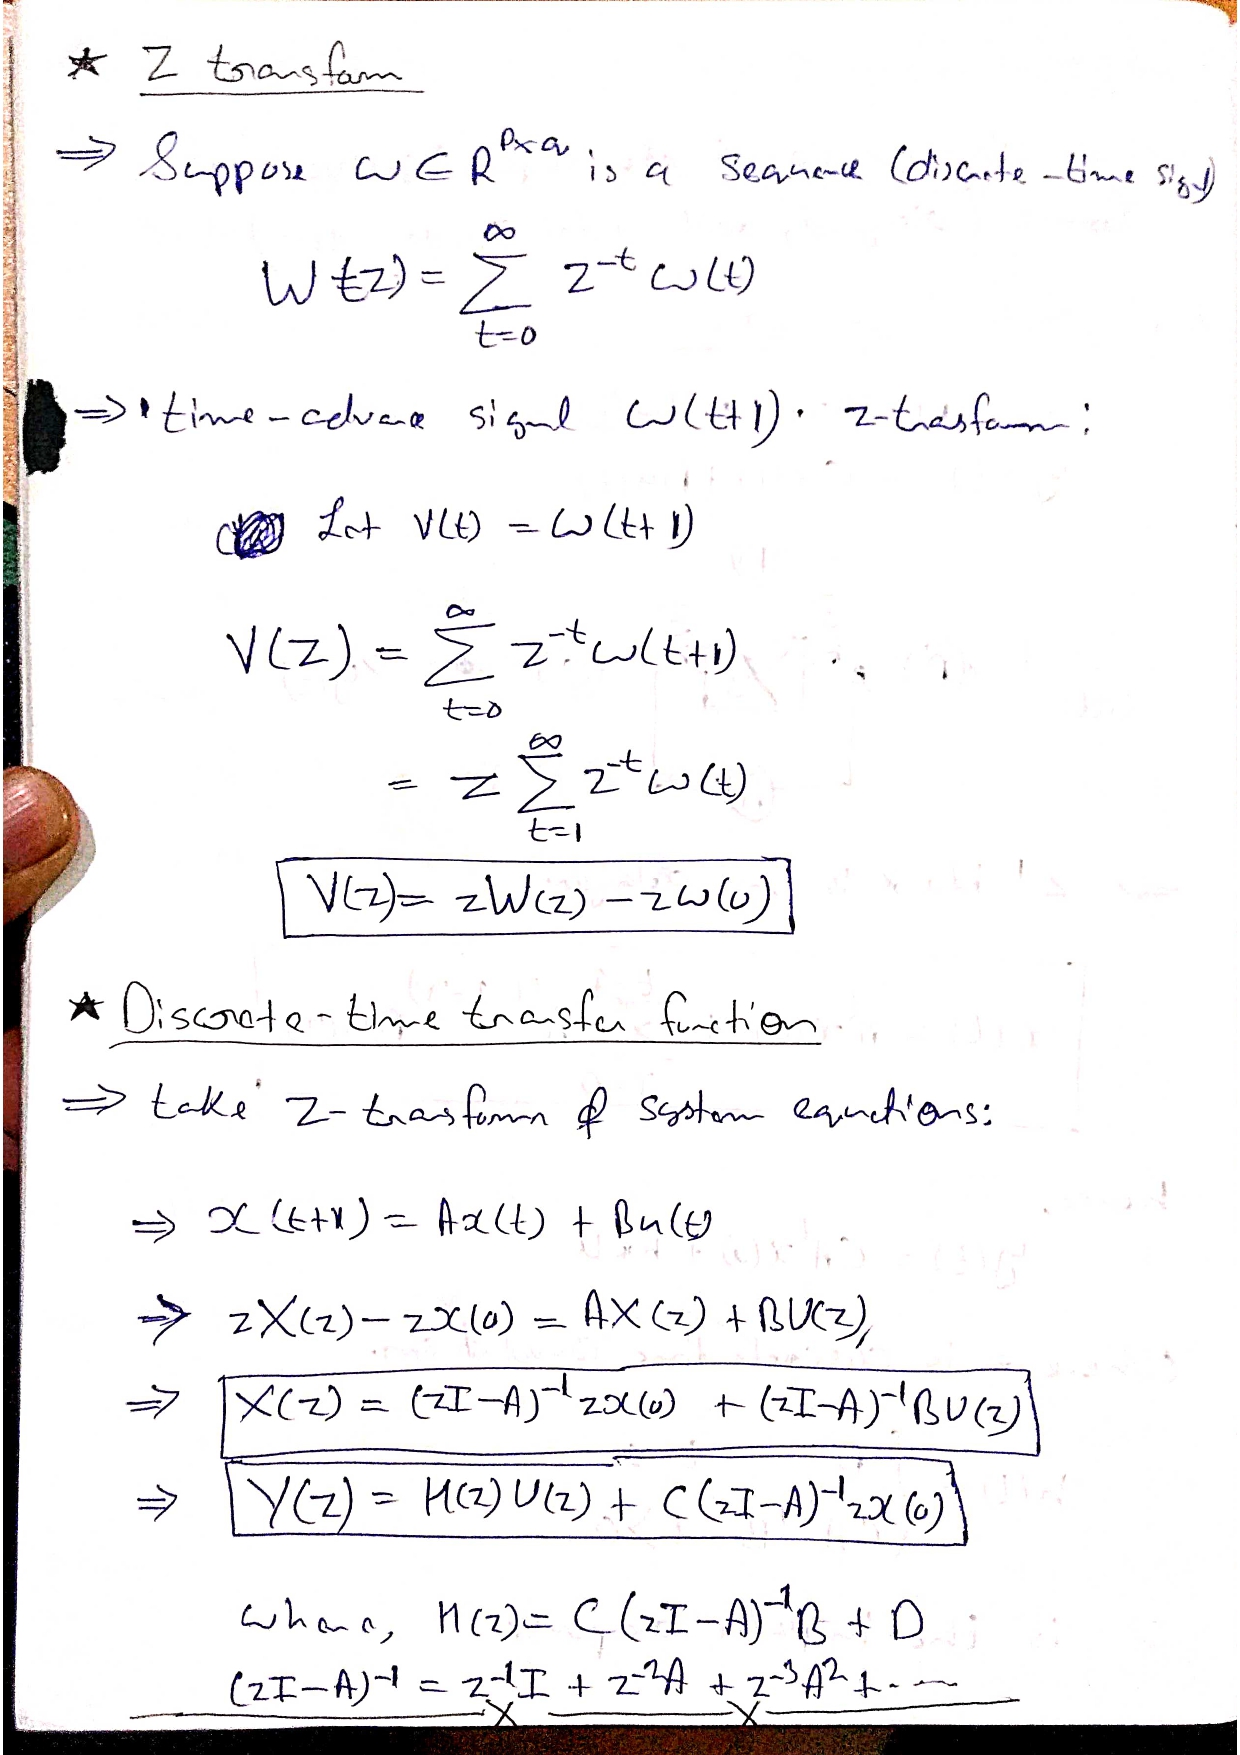 ★ Z transform
⇒ Suppose w ∈ R^{p×q} is a sequence (discrete-time signal)
W(z) = ∑_{t=0}^{∞} z^{-t} w(t)
⇒ time-advance signal w(t+1). z-transform:
Let V(t) = w(t+1)
V(z) = ∑_{t=0}^{∞} z^{-t} w(t+1)
= z ∑_{t=1}^{∞} z^{-t} w(t)
V(z) = zW(z) - zw(0)
★ Discrete-time transfer function
⇒ take z-transform of system equations:
⇒ x(t+1) = Ax(t) + Bu(t)
⇒ zX(z) - zx(0) = AX(z) + BU(z),
⇒ X(z) = (zI-A)^{-1} zx(0) + (zI-A)^{-1} BU(z)
⇒ Y(z) = H(z) U(z) + C(zI-A)^{-1} zx(0)
where, H(z) = C(zI-A)^{-1} B + D
(zI-A)^{-1} = z^{-1}I + z^{-2}A + z^{-3}A^2 + ...